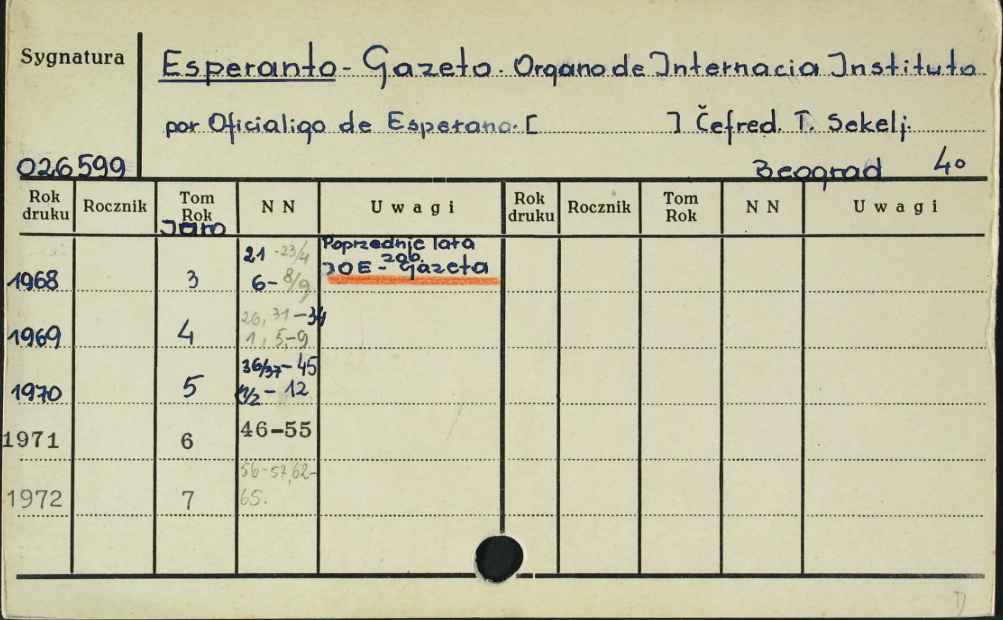 Sygnatura
Esperanto - Gazeto. Organo de Internacia Instituto
por Oficialigo de Esperano. [ ] Čefred. T. Sekelj.
026599
Beograd 4o
Rok druku Rocznik Tom Rok N N Uwagi Rok druku Rocznik Tom Rok N N Uwagi
Jaro
Poprzednie lata
21 -23/4 zob.
1968 3 6- 8/9 IOE - Gazeta
26, 31 -34
1969 4 1, 5-9
36/37- 45
1970 5 1/2 - 12
1971 6 46-55
56-57, 62-
1972 7 65.